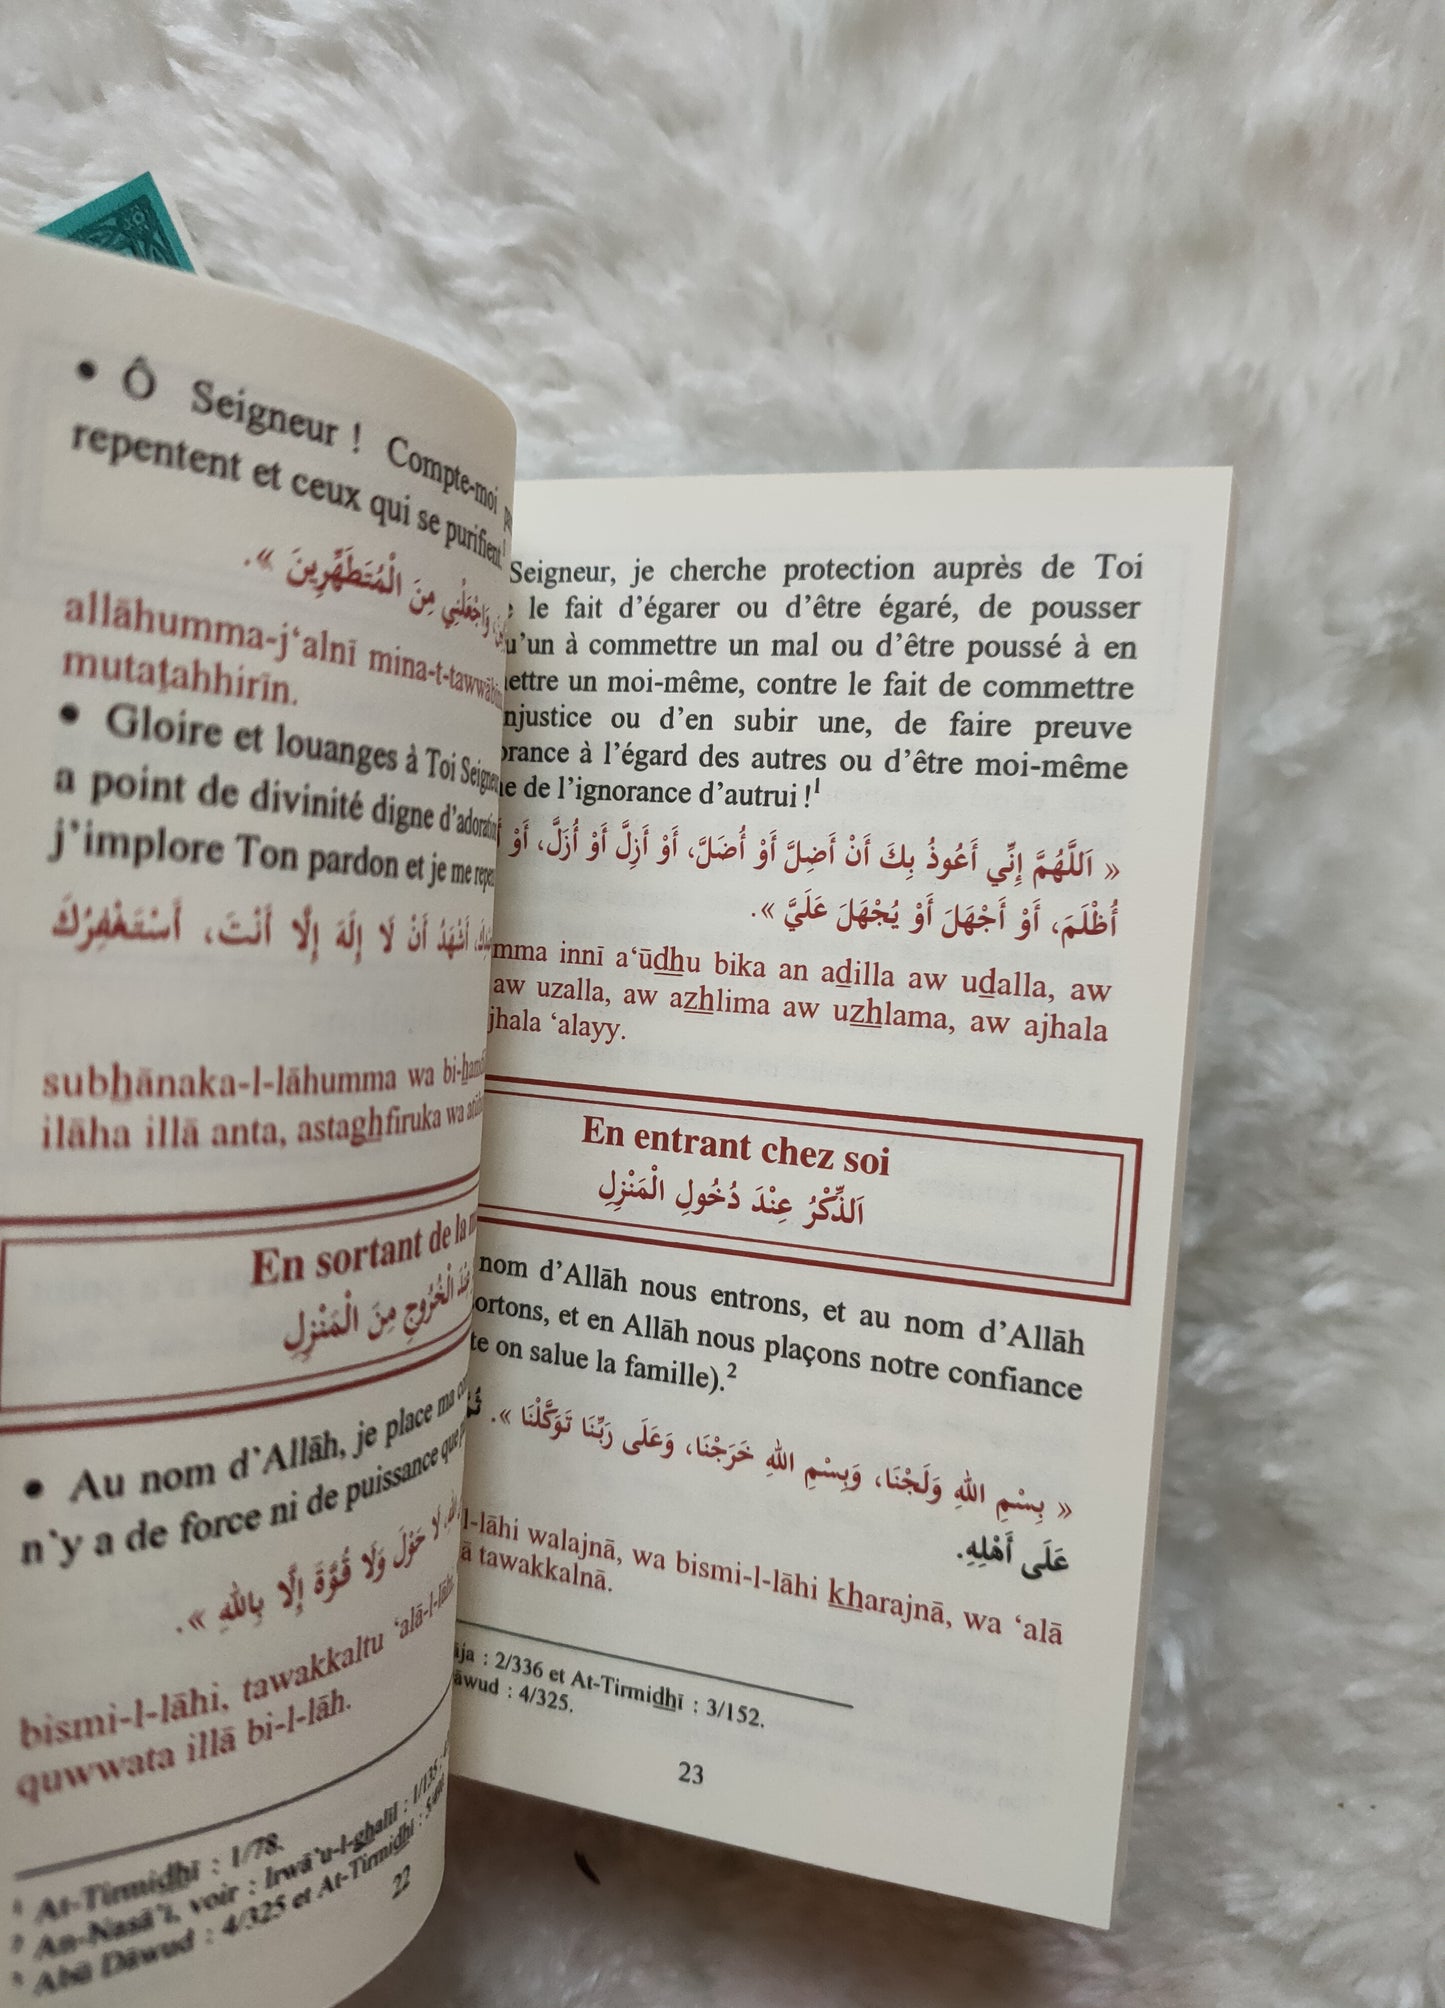 • Ô Seigneur ! Compte-moi
repentent et ceux qui se purifient
وَاجْعَلْنِي مِنَ الْمُتَطَهِّرِينَ ».
allāhumma-j‘alnī mina-t-tawwābīn
mutaṭahhirīn.
• Gloire et louanges à Toi
a point de divinité digne d’adoration
j’implore Ton pardon et je me
أَشْهَدُ أَنْ لَا إِلَهَ إِلَّا أَنْتَ، أَسْتَغْفِرُكَ
subhānaka-l-lāhumma wa
ilāha illā anta, astaghfiruka wa
En sortant de la
الْخُرُوجِ مِنَ الْمَنْزِلِ
• Au nom d’Allāh, je place ma
n’y a de force ni de puissance que
لَا حَوْلَ وَلَا قُوَّةَ إِلَّا بِاللهِ ».
bismi-l-lāhi, tawakkaltu ‘alā-l-lāhi
quwwata illā bi-l-lāh.
1 At-Tirmidhī : 1/78.
2 An-Nasā’ī, voir : Irwā’u-l-ghalīl : 1/135
3 Abū Dāwud : 4/325 et At-Tirmidhī :
22
Seigneur, je cherche protection auprès de Toi
le fait d’égarer ou d’être égaré, de pousser
u’un à commettre un mal ou d’être poussé à en
ettre un moi-même, contre le fait de commettre
njustice ou d’en subir une, de faire preuve
orance à l’égard des autres ou d’être moi-même
e de l’ignorance d’autrui !1
« اَللَّهُمَّ إِنِّي أَعُوذُ بِكَ أَنْ أَضِلَّ أَوْ أُضَلَّ، أَوْ أَزِلَّ أَوْ أُزَلَّ، أَوْ
أُظْلَمَ، أَوْ أَجْهَلَ أَوْ يُجْهَلَ عَلَيَّ ».
mma innī a‘ūdhu bika an adilla aw udalla, aw
aw uzalla, aw azhlima aw uzhlama, aw ajhala
jhala ‘alayy.
En entrant chez soi
اَلذِّكْرُ عِنْدَ دُخُولِ الْمَنْزِلِ
nom d’Allāh nous entrons, et au nom d’Allāh
ortons, et en Allāh nous plaçons notre confiance
te on salue la famille).2
« بِسْمِ اللهِ وَلَجْنَا، وَبِسْمِ اللهِ خَرَجْنَا، وَعَلَى رَبِّنَا تَوَكَّلْنَا ».
عَلَى أَهْلِهِ.
l-lāhi walajnā, wa bismi-l-lāhi kharajnā, wa ‘alā
ā tawakkalnā.
āja : 2/336 et At-Tirmidhī : 3/152.
āwud : 4/325.
23